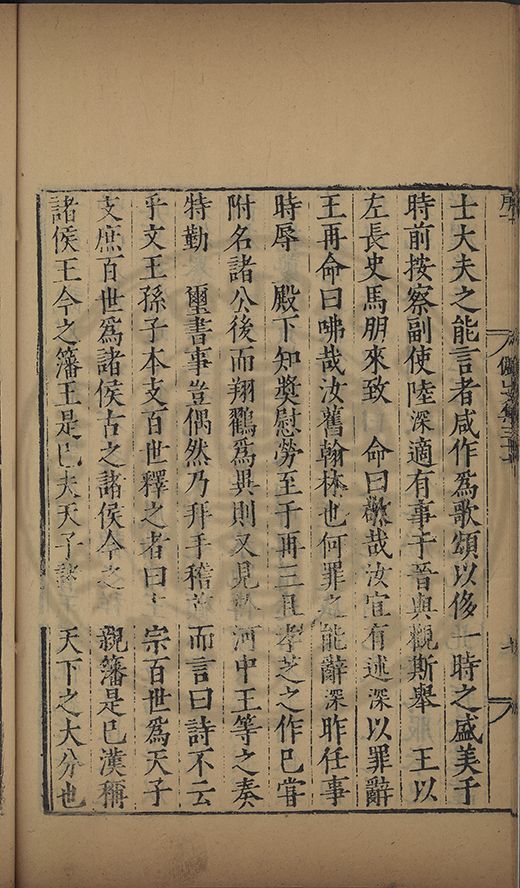 士大夫之能言者咸作爲歌頌以侈一時之盛美于
時前按察副使陸深適有事于晉與觀斯舉　王以
左長史馬朋來致　命曰歡哉汝宜有述深以罪辭
王再命曰咈哉汝舊翰林也何罪之能辭深昨任事
時辱　殿下知奬慰勞至于再三且孝芝之作已嘗
附名諸公後而翔鸐爲異則又見於河中王等之奏
特勤　璽書事豈偶然乃拜手稽首而言曰詩不云
乎文王孫子本支百世釋之者曰本宗百世爲天子
支庶百世爲諸侯古之諸侯今之　親藩是已漢稱
諸侯王今之藩王是已夫天子諸　天下之大分也